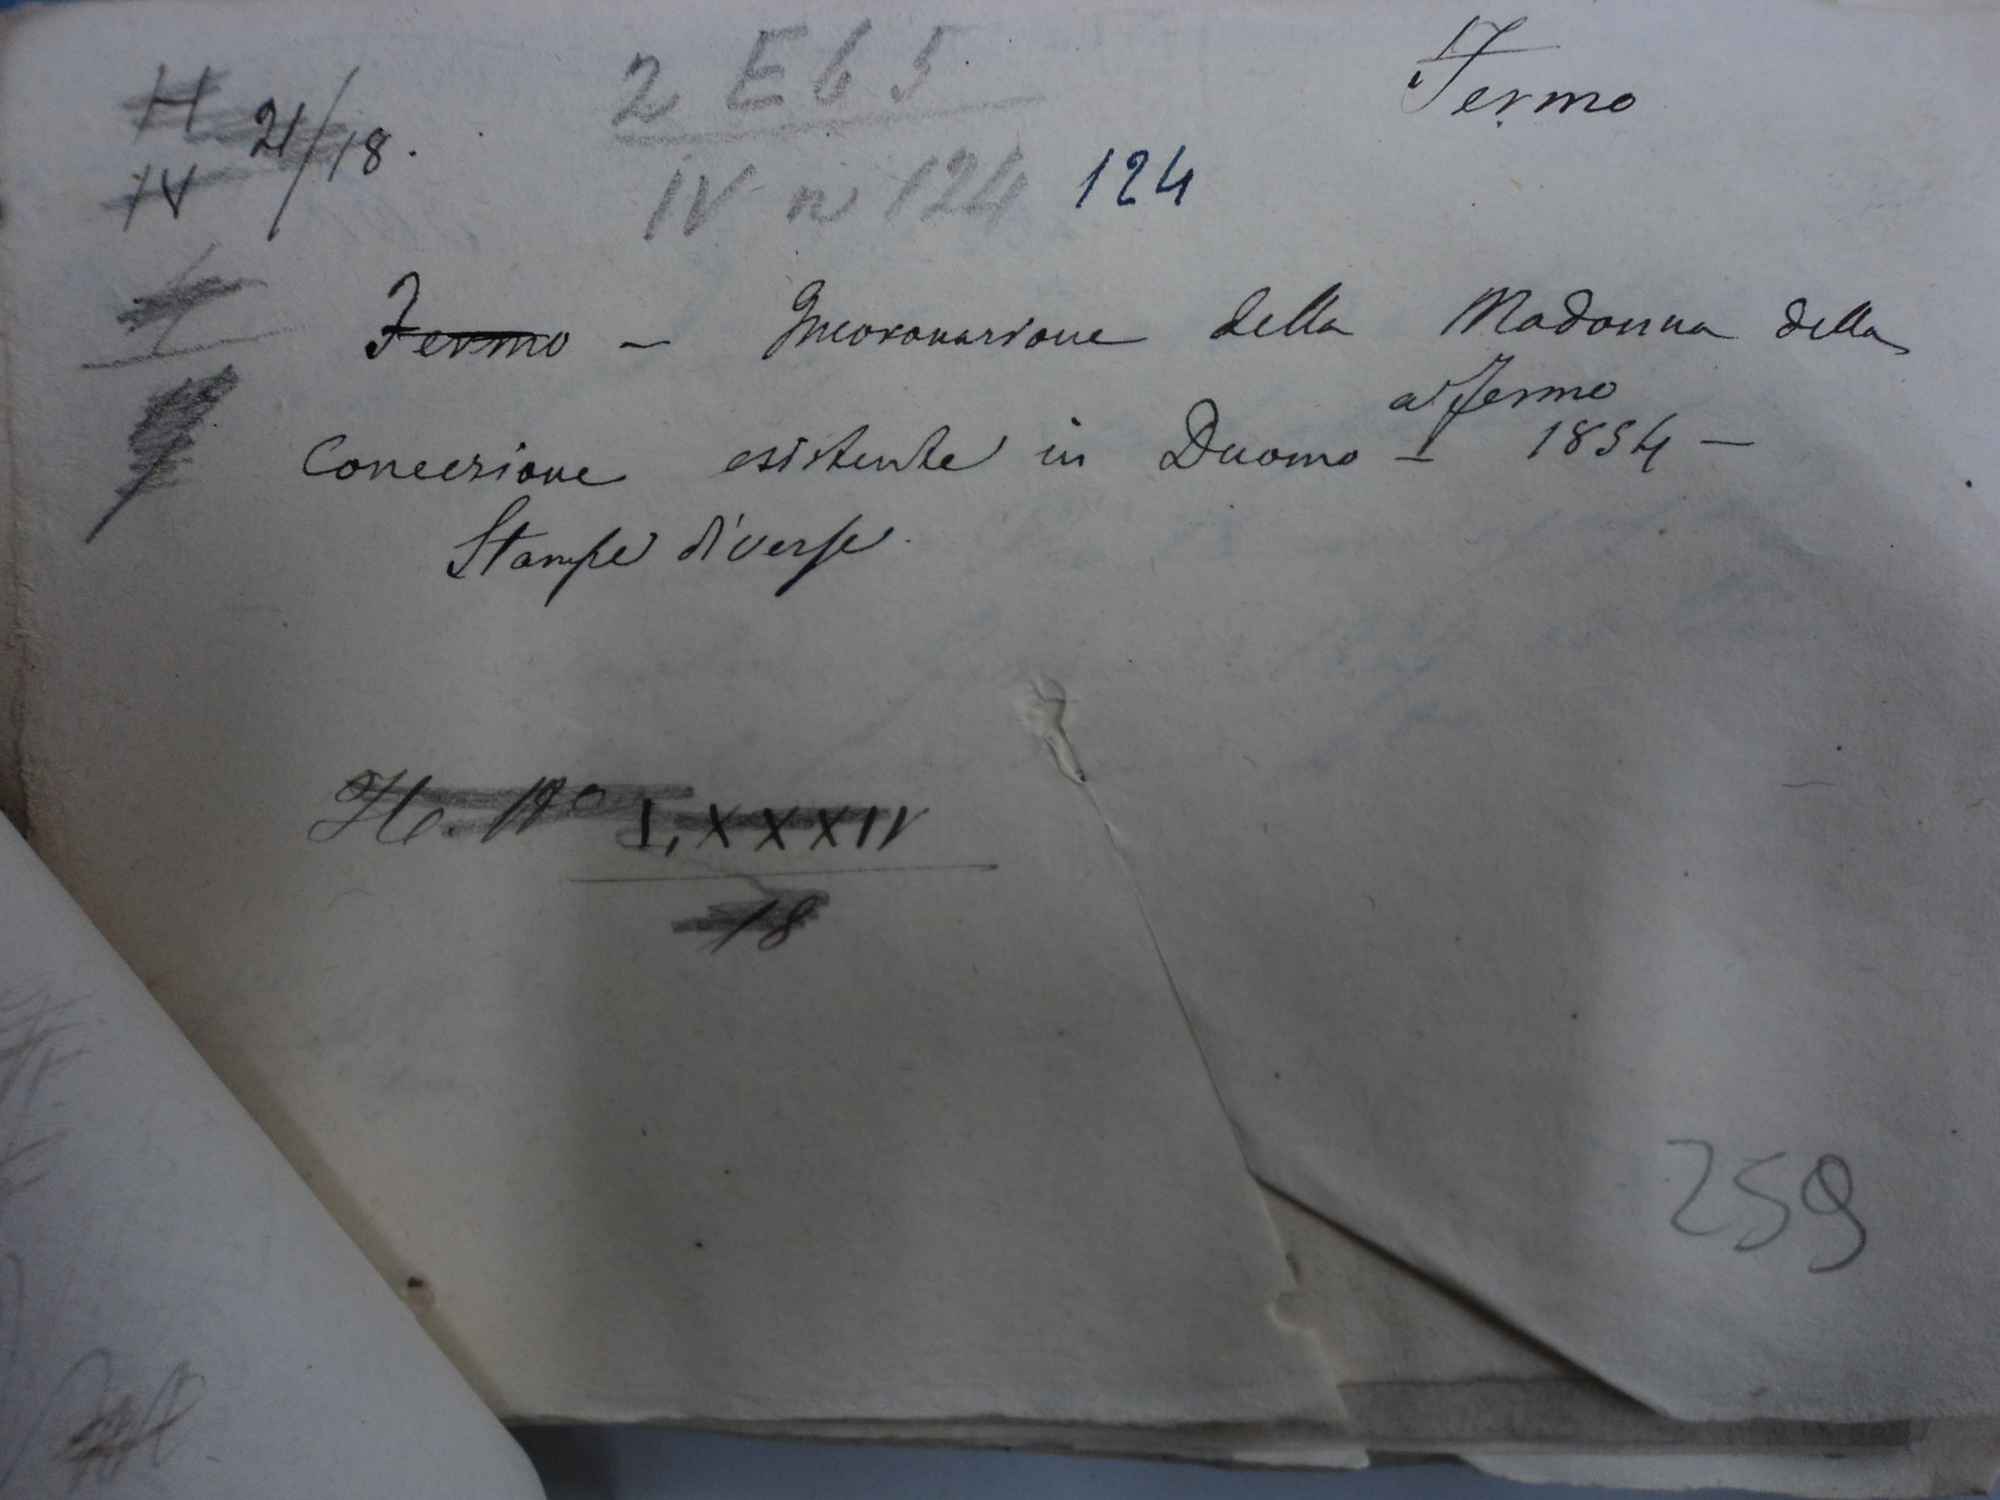 Fermo
2 E 6 5
H 21/18.
IV
IV n 124 124
Fermo - Incoronazione della Madonna della
a Fermo
Concezione esistente in Duomo - 1854 -
Stampe diverse.
LXXXIV
18
259